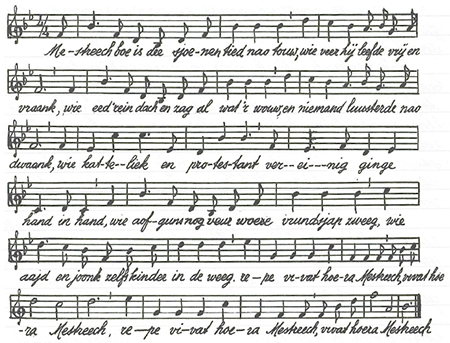 Me--streech boe is dee sjoe-nen tied nao touw, wie veer hij leefde vrij en
vraank, wie eed'rein dach en zag al wat 'r wouw, en niemand luusterde nao
dwaank, wie kat-te--liek en pro-tes-tant ver--ei--nig ginge
hand in hand, wie aof-guns nog veur woere vrundsjap zweeg, wie
aajd en joonk zelfs kinder in de weeg. re-pe vi-vat hoe-ra Mestreech, vivat hoe
-ra Mestreech, re-pe vi-vat hoe-ra Mestreech, vivat hoera Mestreech